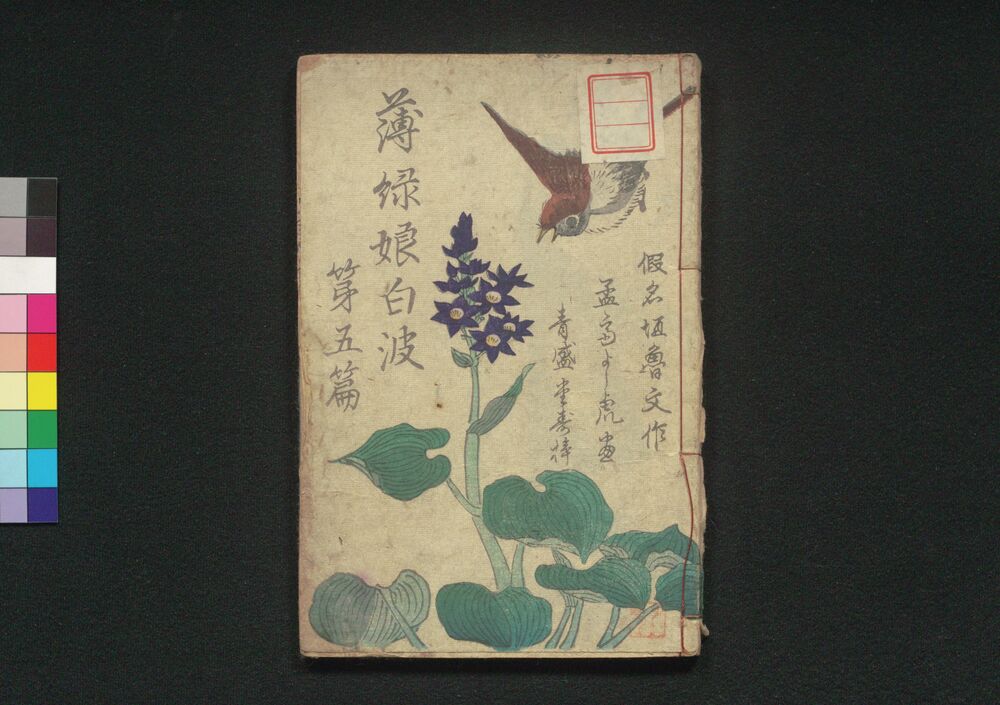 假名垣魯文作
孟斎よし虎画
青盛堂寿梓
薄緑娘白波
第五篇